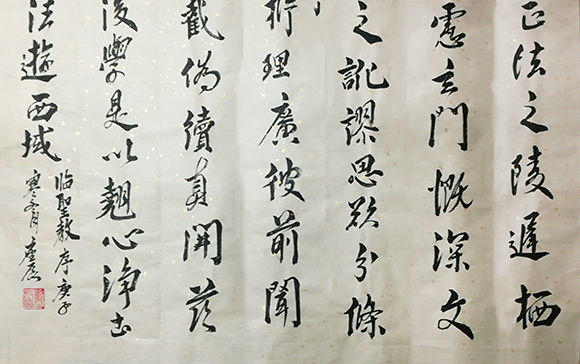 正法之陵遲栖
慮玄門慨深文
之訛謬思欲分條
析理廣彼前聞
截偽續真開茲
後學是以翹心淨土
法遊西域
临聖教序庚子
寒月